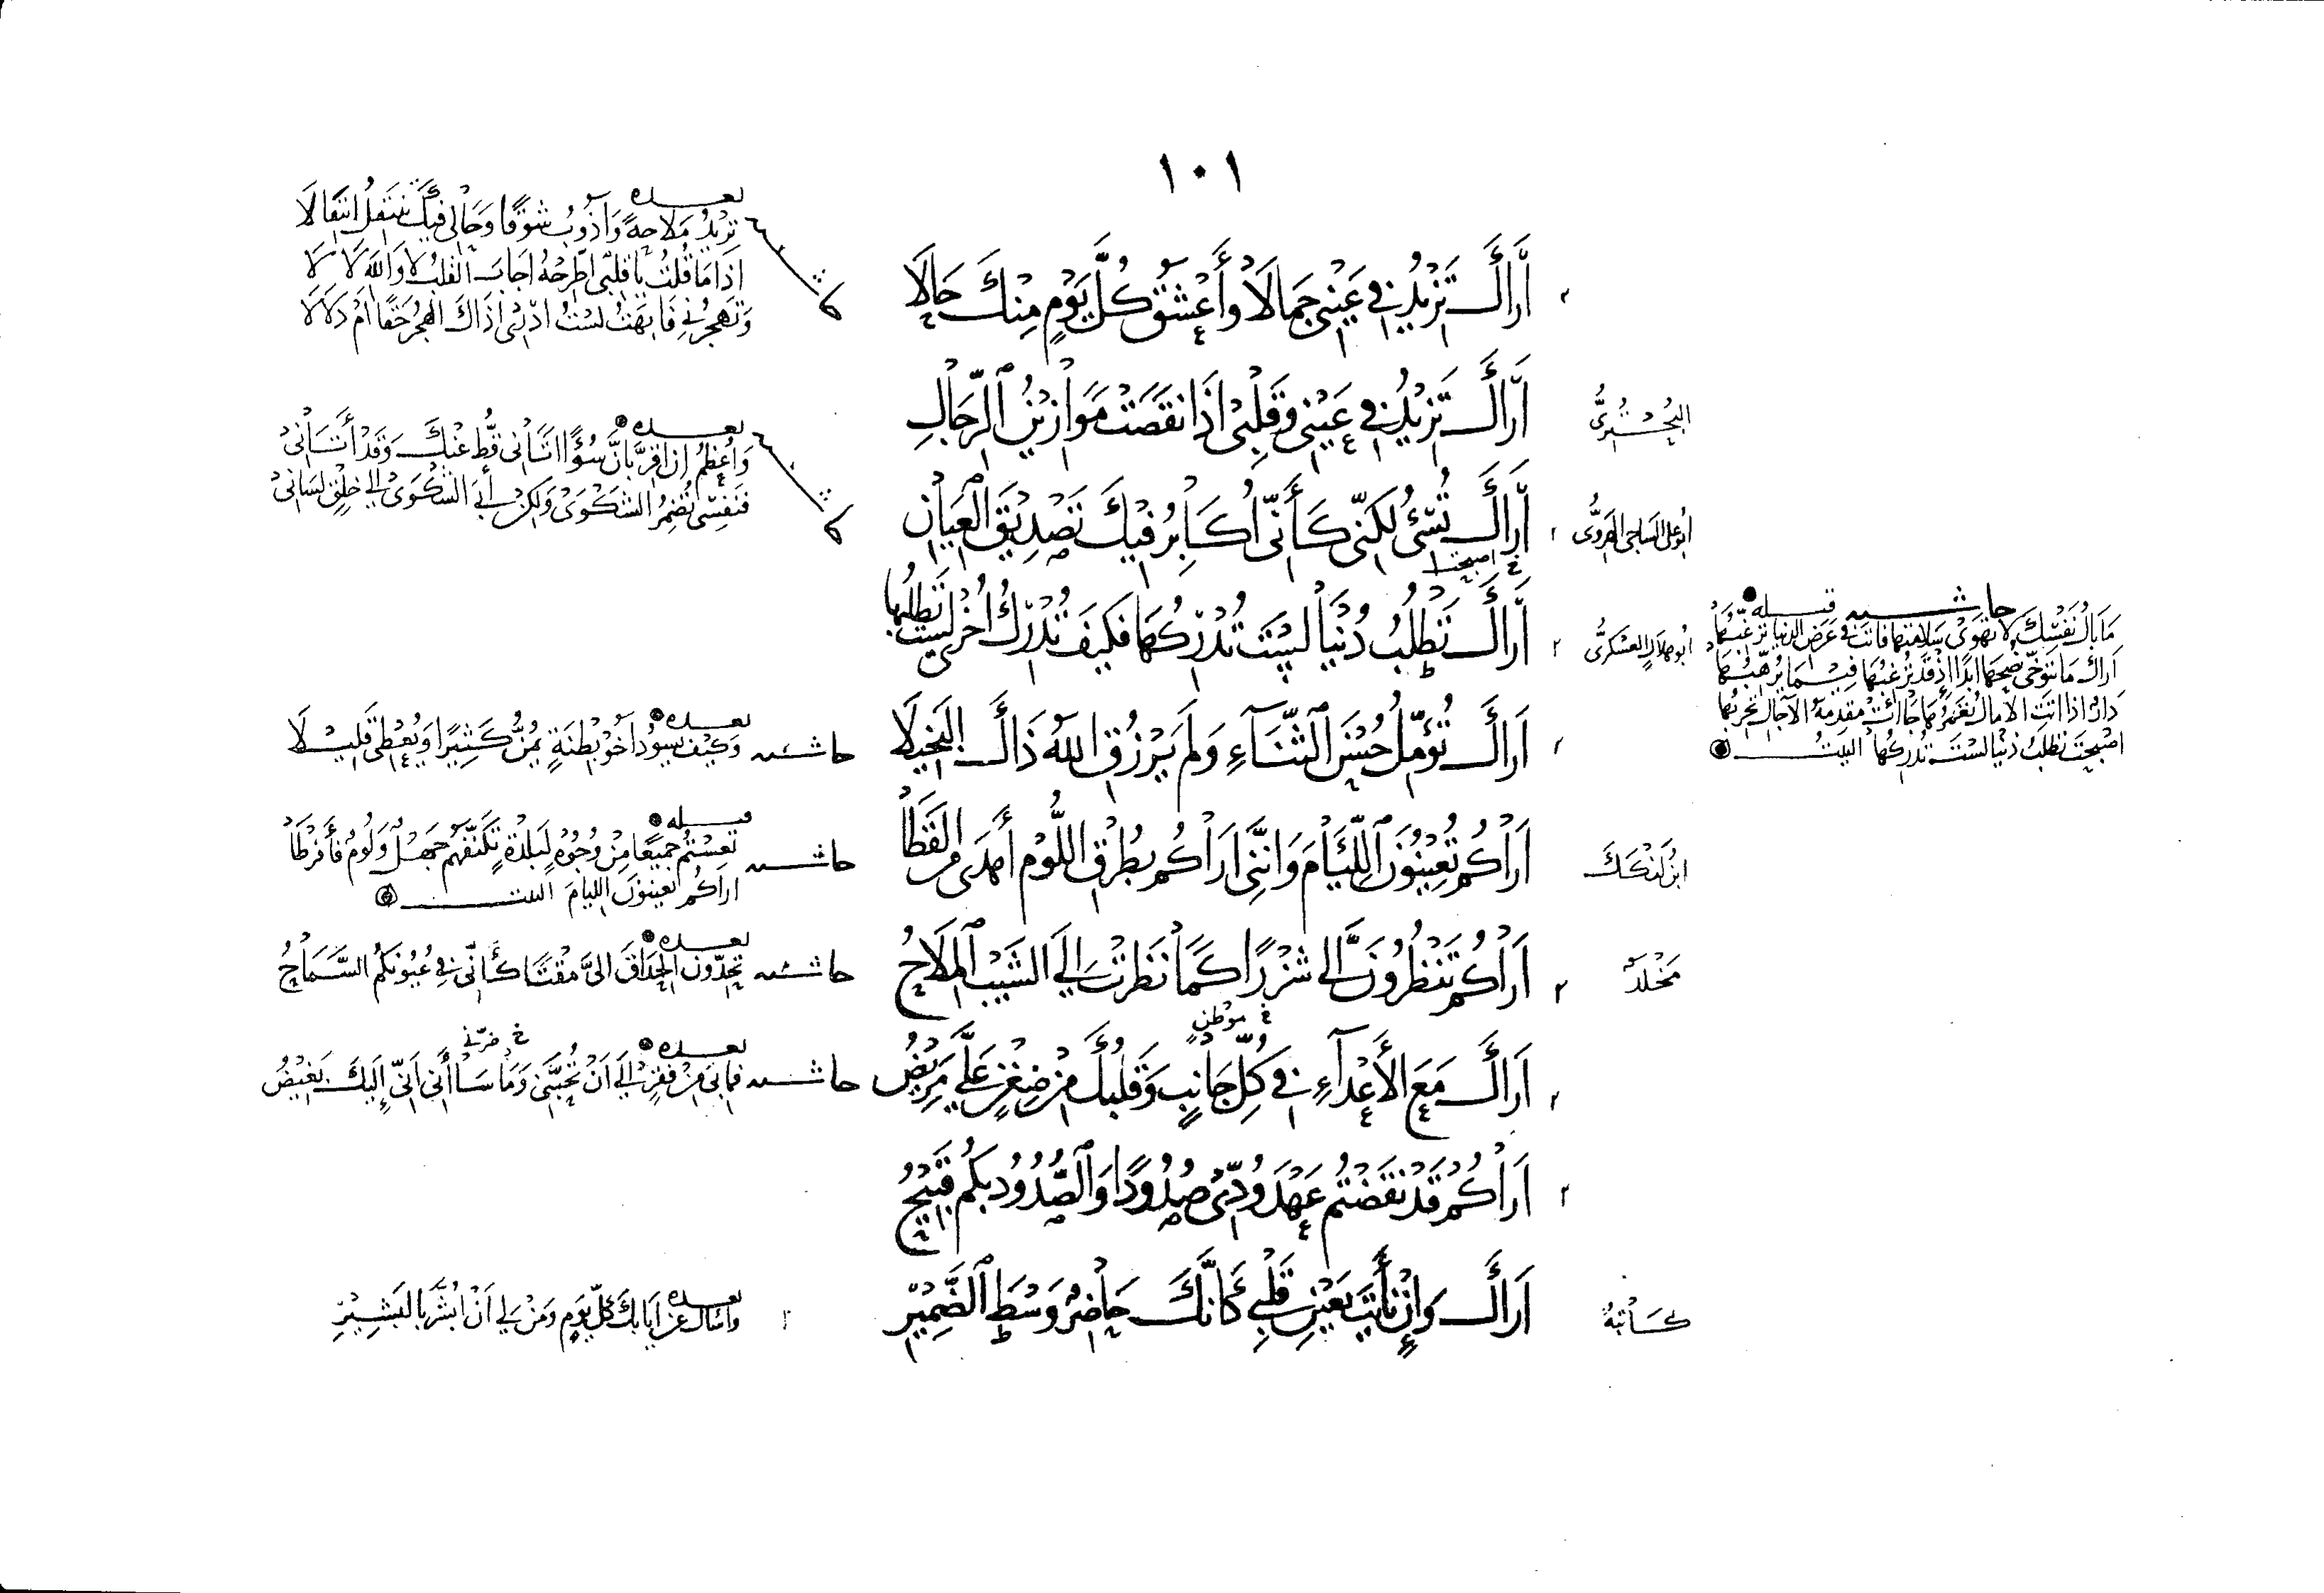 ١٠١
أَرَاكَ تَزِيْدُ فِي عَيْنِي جَمَالًا وَأَعْشَقُ كُلَّ يَوْمٍ مِنْكَ حَالَا
بعده
تَزِيْدُ مَلَاحَةً وَأَذُوْبُ شَوْقًا وَحَالِي فِيْكَ تَنْتَقِلُ انْتِقَالَا
اِذَا مَا قُلْتُ يَا قَلْبِي اطَّرِحْهُ اَجَابَ القَلْبُ لَا وَاللَّهِ لَا لَا
وَتَهْجُرُنِي فَأُبْهَتُ لَسْتُ اَدْرِي اَذَاكَ الهَجْرُ حَقًّا اَمْ دَلَالَا
البُحْتُرِيُّ
أَرَاكَ تَزِيْدُ فِي عَيْنِي وَقَلْبِي اِذَا نَقَصَتْ مَوَازِيْنُ الرِّجَالِ
أبو علي الساجي الهروي
أَرَاكَ تُسِيْءُ لَكِنِّي كَأَنِّي أُكَابِرُ فِيْكَ تَصْدِيْقَ العِيَانِ
بعده
وَأُعْظِمُ اِنْ أُقِرَّ بِأَنَّ سُوْءًا أَتَانِي قَطُّ عَنْكَ وَقَدْ أَتَانِي
فَنَفْسِي تُضْمِرُ الشَّكْوَى وَلَكِنْ أَبَى الشَّكْوَى إِلَى خَلْقٍ لِسَانِي
خ اصبحت
أبو هلال العسكري
أَرَاكَ تَطْلُبُ دُنْيَا لَسْتَ تُدْرِكُهَا فَكَيْفَ تُدْرِكُ أُخْرَى لَسْتَ تَطْلُبُهَا
حاشيه قبله
مَا بَالُ نَفْسِكَ لَا تَهْوَى سَلَامَتَهَا فَأَنْتَ فِي عَرَضِ الدُّنْيَا تُرَغِّبُهَا
اَرَاكَ مَا تَتَوَخَّى نُصْحَهَا اَبَدًا اِذْ قَدْ تُرَغِّبُهَا فِيْمَا يُرَهِّبُهَا
دَارٌ اِذَا اَتَتِ الآمَالُ تَعْمُرُهَا جَاءَتْ مُقَدِّمَةُ الآجَالِ تُخْرِبُهَا
اَصْبَحْتَ تَطْلُبُ دُنْيَا لَسْتَ تُدْرِكُهَا البيت
أَرَاكَ تُؤَمِّلُ حُسْنَ الثَّنَاءِ وَلَمْ يَرْزُقِ اللَّهُ ذَاكَ البَخِيْلَا
حاشيه بعده
وَكَيْفَ يَسُوْدُ أَخُو بِطْنَةٍ يَمُنُّ كَثِيْرًا وَيُعْطِي قَلِيْلَا
ابْنُ لَنْكَكَ
أَرَاكُمْ تُعِيْنُوْنَ اللِّئَامَ وَاِنَّنِي اَرَاكُمْ بِطُرْقِ اللُّؤْمِ أَهْدَى مِنَ القَطَا
حاشيه قبله
تَعِسْتُمْ جَمِيْعًا مِنْ وُجُوْهٍ لِبَلْدَةٍ تَكَنَّفَهُمْ جَهْلٌ وَلُؤْمٌ فَأَفْرَطَا
اَرَاكُمْ تُعِيْنُوْنَ اللِّيَامَ البيت
مَخْلَدٌ
أَرَاكُمْ تَنْظُرُوْنَ إِلَيَّ شَزْرًا كَمَا نَظَرَتْ إِلَى الشَّيْبِ المِلَاحُ
حاشيه بعده
تُحِدُّوْنَ الحِدَاقَ اِلَيَّ مَقْتًا كَأَنِّي فِي عُيُوْنِكُمُ السَّمَاحُ
خ موطن
أَرَاكَ مَعَ الأَعْدَاءِ فِي كُلِّ جَانِبٍ وَقَلْبُكَ مِنْ ضِغْنٍ عَلَيَّ مَرِيْضُ
حاشيه بعده خ ضرني
فَمَا بِيَ مِنْ فَقْرٍ إِلَى أَنْ تُحِبَّنِي وَمَا سَاءَنِي اَنِّي إِلَيْكَ بَغِيْضُ
أَرَاكُمْ قَدْ نَقَضْتُمْ عَهْدَ وُدِّي صُدُوْدًا وَالصُّدُوْدُ بِكُمْ قَبِيْحُ
كَاتِبُهُ
أَرَاكَ وَإِنْ نَأَيْتَ بِعَيْنِ قَلْبِي كَأَنَّكَ حَاضِرٌ وَسْطَ الضَّمِيْرِ
بعده
وَاَسْأَلُ عَنْ اِيَابِكَ كُلَّ يَوْمٍ وَمَنْ لِي أَنْ اُبَشَّرَ بِالبَشِيْرِ